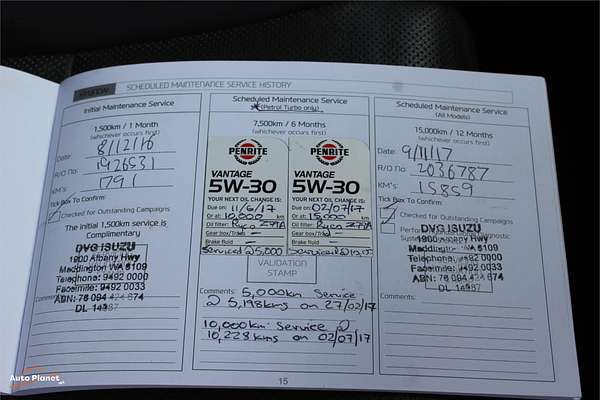 HYUNDAI
SCHEDULED MAINTENANCE SERVICE HISTORY
Initial Maintenance Service
1,500km / 1 Month
(whichever occurs first)
Date: 8/12/16
R/O No 1926531
KM's: 1791
Tick Box To Confirm:
Checked for Outstanding Campaigns
The initial 1,500km service is
Complimentary
DVG ISUZU
1900 Albany Hwy
Maddington WA 6109
Telephone: 9492 0000
Facsimile: 9492 0033
ABN: 76 094 424 674
DL 14987
Comments:
Scheduled Maintenance Service
(Petrol Turbo only)
7,500km / 6 Months
(whichever occurs first)
PENRITE
VANTAGE
5W-30
YOUR NEXT OIL CHANGE IS:
Due on: 11/6/17
Or at: 10,000 km
Oil filter: Ryco
Gear box/Trans
Brake fluid
Serviced @ 5,000
PENRITE
VANTAGE
5W-30
YOUR NEXT OIL CHANGE IS:
Due on: 02/07/17
Or at: 15,000 km
Oil filter: Ryco
Gear box/Trans
Brake fluid
Serviced @
VALIDATION
STAMP
Comments: 5,000km Service
@ 5,198kms on 27/02/17
10,000km Service @
10,228kms on 02/07/17
Scheduled Maintenance Service
(All Models)
15,000km / 12 Months
(whichever occurs first)
Date: 9/11/17
R/O No 2036787
KM's: 15859
Tick Box To Confirm:
Checked for Outstanding Campaigns
DVG ISUZU
1900 Albany Hwy
Maddington WA 6109
Telephone: 9492 0000
Facsimile: 9492 0033
ABN: 76 094 424 674
DL 14987
Comments:
15
Auto Planet